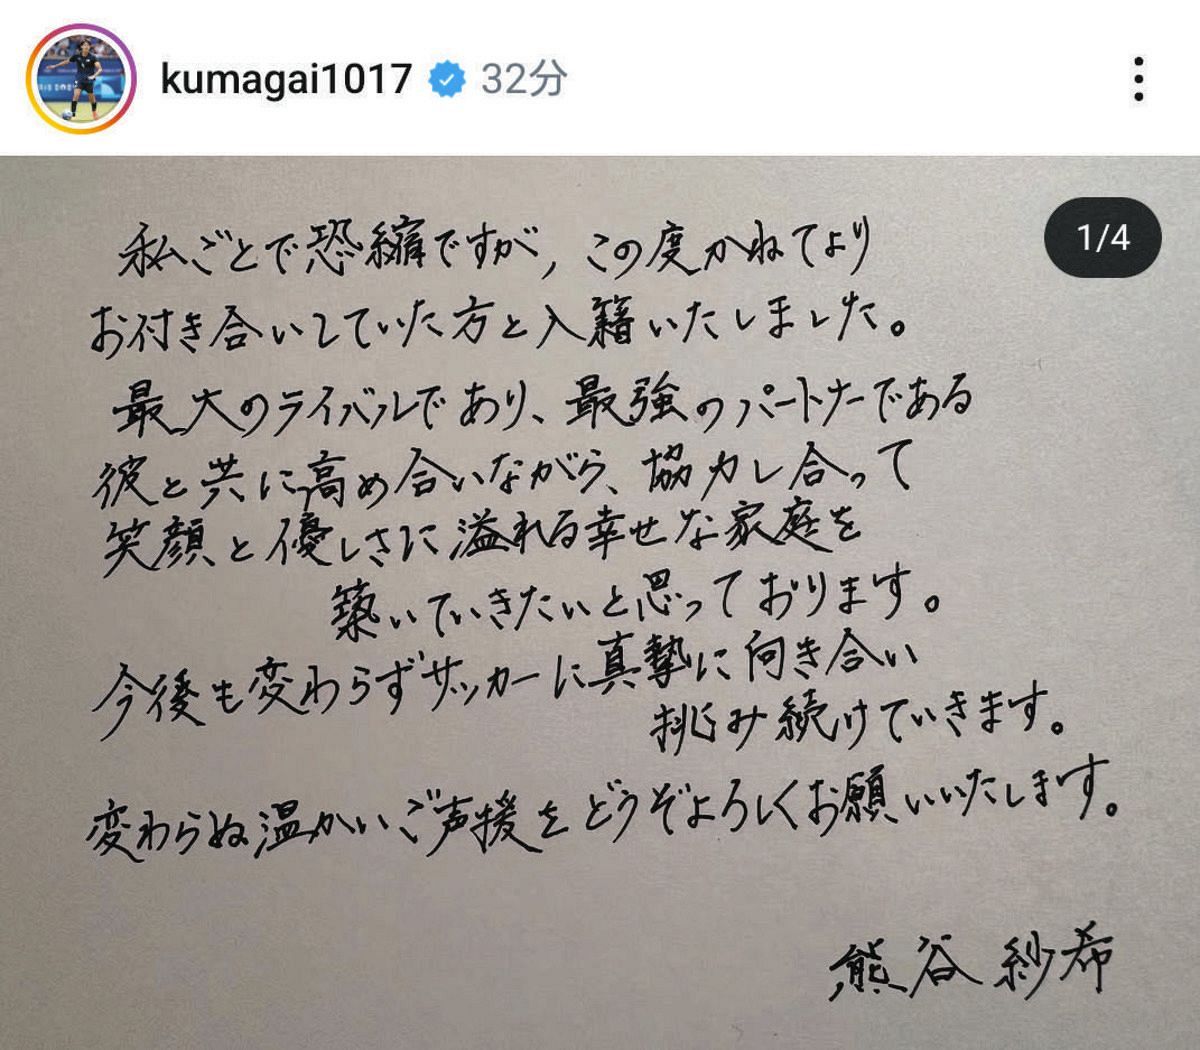 kumagai1017 32分
1/4
私ごとで恐縮ですが, この度かねてより
お付き合いしていた方と入籍いたしました。
最大のライバルであり、最強のパートナーである
彼と共に高め合いながら、協力し合って
笑顔と優しさに溢れる幸せな家庭を
築いていきたいと思っております。
今後も変わらずサッカーに真摯に向き合い
挑み続けていきます。
変わらぬ温かいご声援をどうぞよろしくお願いいたします。
熊谷紗希